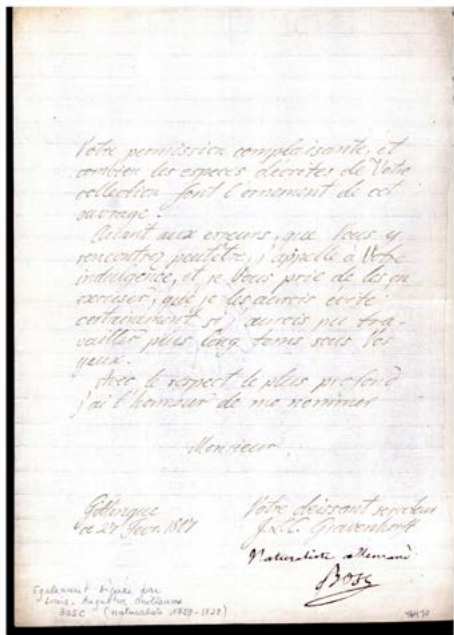 Votre permission complaisante, et
combien les especes décrites de Votre
collection font l'ornement de cet
ouvrage.
Quant aux erreurs, que Vous y
rencontrez peutètre, j'appelle à Votre
indulgence, et je Vous prie de les en
excuser, que je les aurois evité
certainement si j'aurois pu tra-
vailler plus long tems sous Vos
yeux.
Avec le respect le plus profond
j'ai l'honneur de me nommer
Monsieur
Gottingue
ce 27 Fevr. 1807
Votre obeissant serviteur
J.L.C. Gravenhorst
Naturaliste allemand
Bosc
Egalement signée par
Louis, Augustin Guillaume
BOSC (naturaliste 1759-1828)